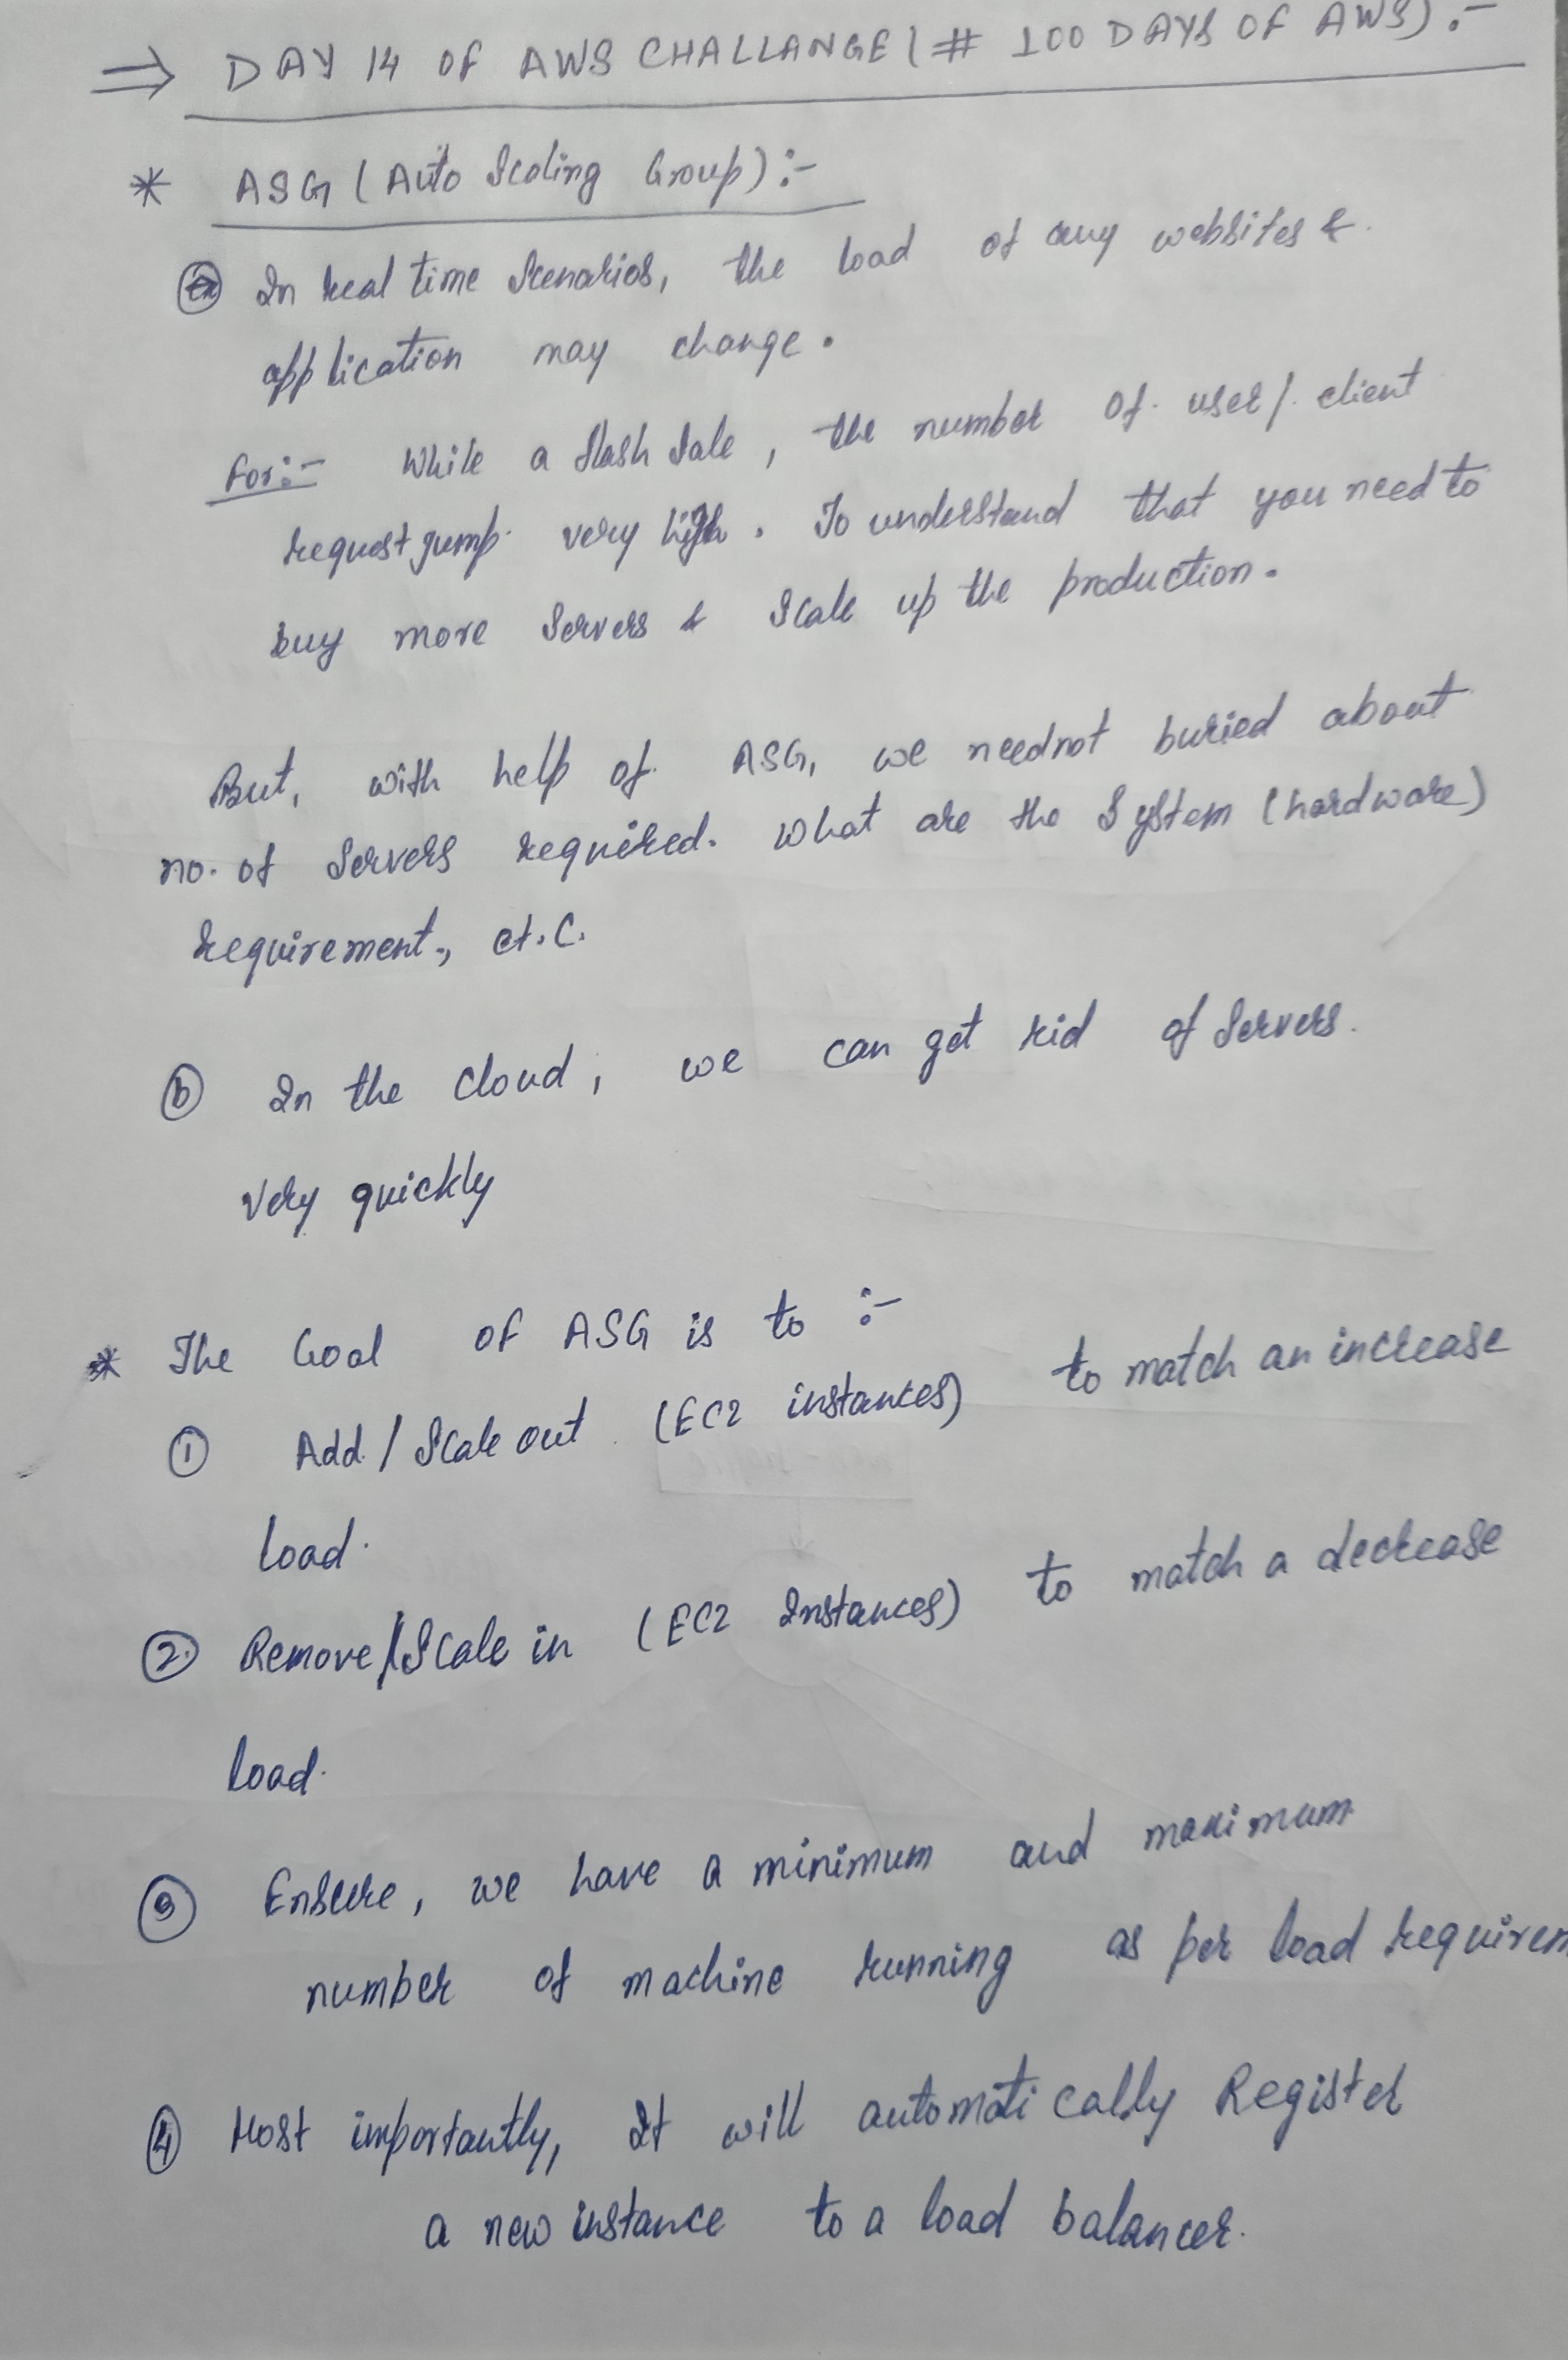 ⇒ DAY 14 OF AWS CHALLANGE (# 100 DAYS OF AWS) :-
* ASG (Auto Scaling Group) :-
ⓐ In real time Scenarios, the load of any websites &
application may change.
For:- While a flash Sale, the number of user/ client
request jump very high. To understand that you need to
buy more Servers & Scale up the production.
But, with help of ASG, we neednot buried about
no. of Servers required. What are the System (hardware)
requirement, et.c.
ⓑ In the Cloud, we can get rid of Servers.
very quickly
* The Goal OF ASG is to :-
① Add / Scale out (EC2 instances) to match an increase
load.
② Remove/Scale in (EC2 Instances) to match a decrease
load.
③ Ensure, we have a minimum and maximum
number of machine running as per load requirem
④ Most importantly, It will automatically Register
a new instance to a load balancer.